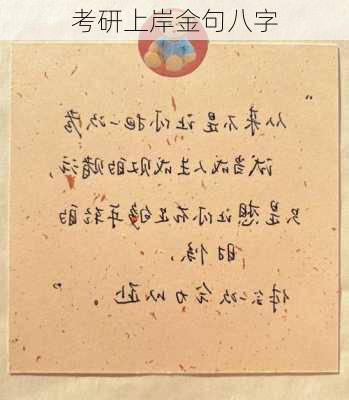 考研上岸金句八字
“从来不是让你把一次考
试当成人生成败的赌注，
只是想让你在足够年轻的
时候，
体会一次全力以赴。”